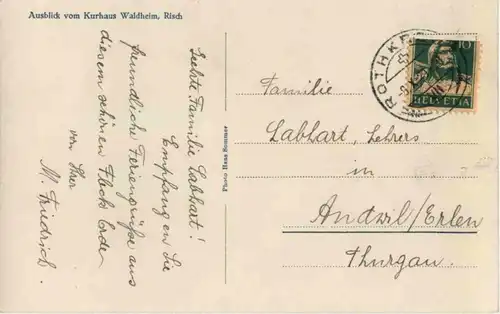 Ausblick vom Kurhaus Waldheim, Risch
Liebste Familie Labhart!
Empfangen Sie
freundliche Feriengrüße aus
diesem schönen Fleck Erde
von Ihrer
M. Friedrich.
Photo Hans Sommer
ROTHKR
10
HELVETIA
Familie
Labhart, Lehrers
in
Andwil/Erlen
Thurgau.